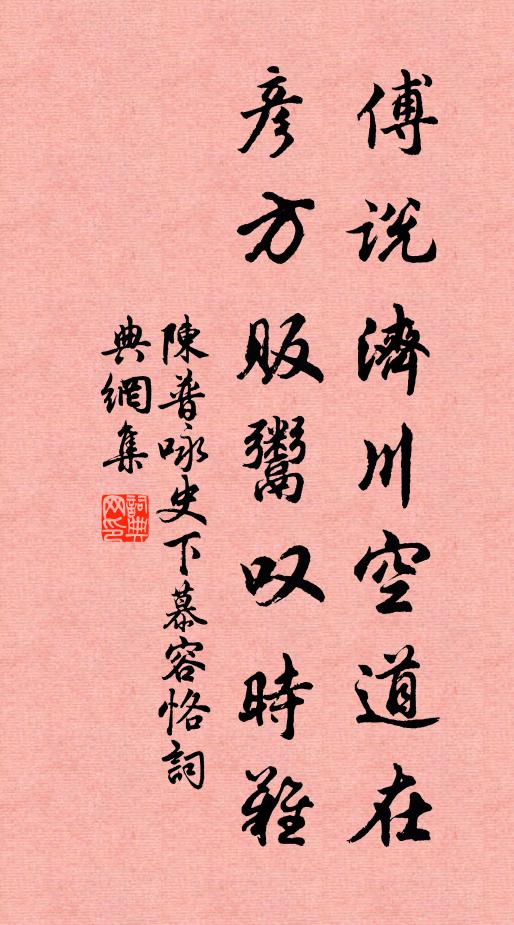 傅说濟川空道在
彦方贩鬻叹時難
陳普咏史下慕容恪詞
典網集
詞典网印